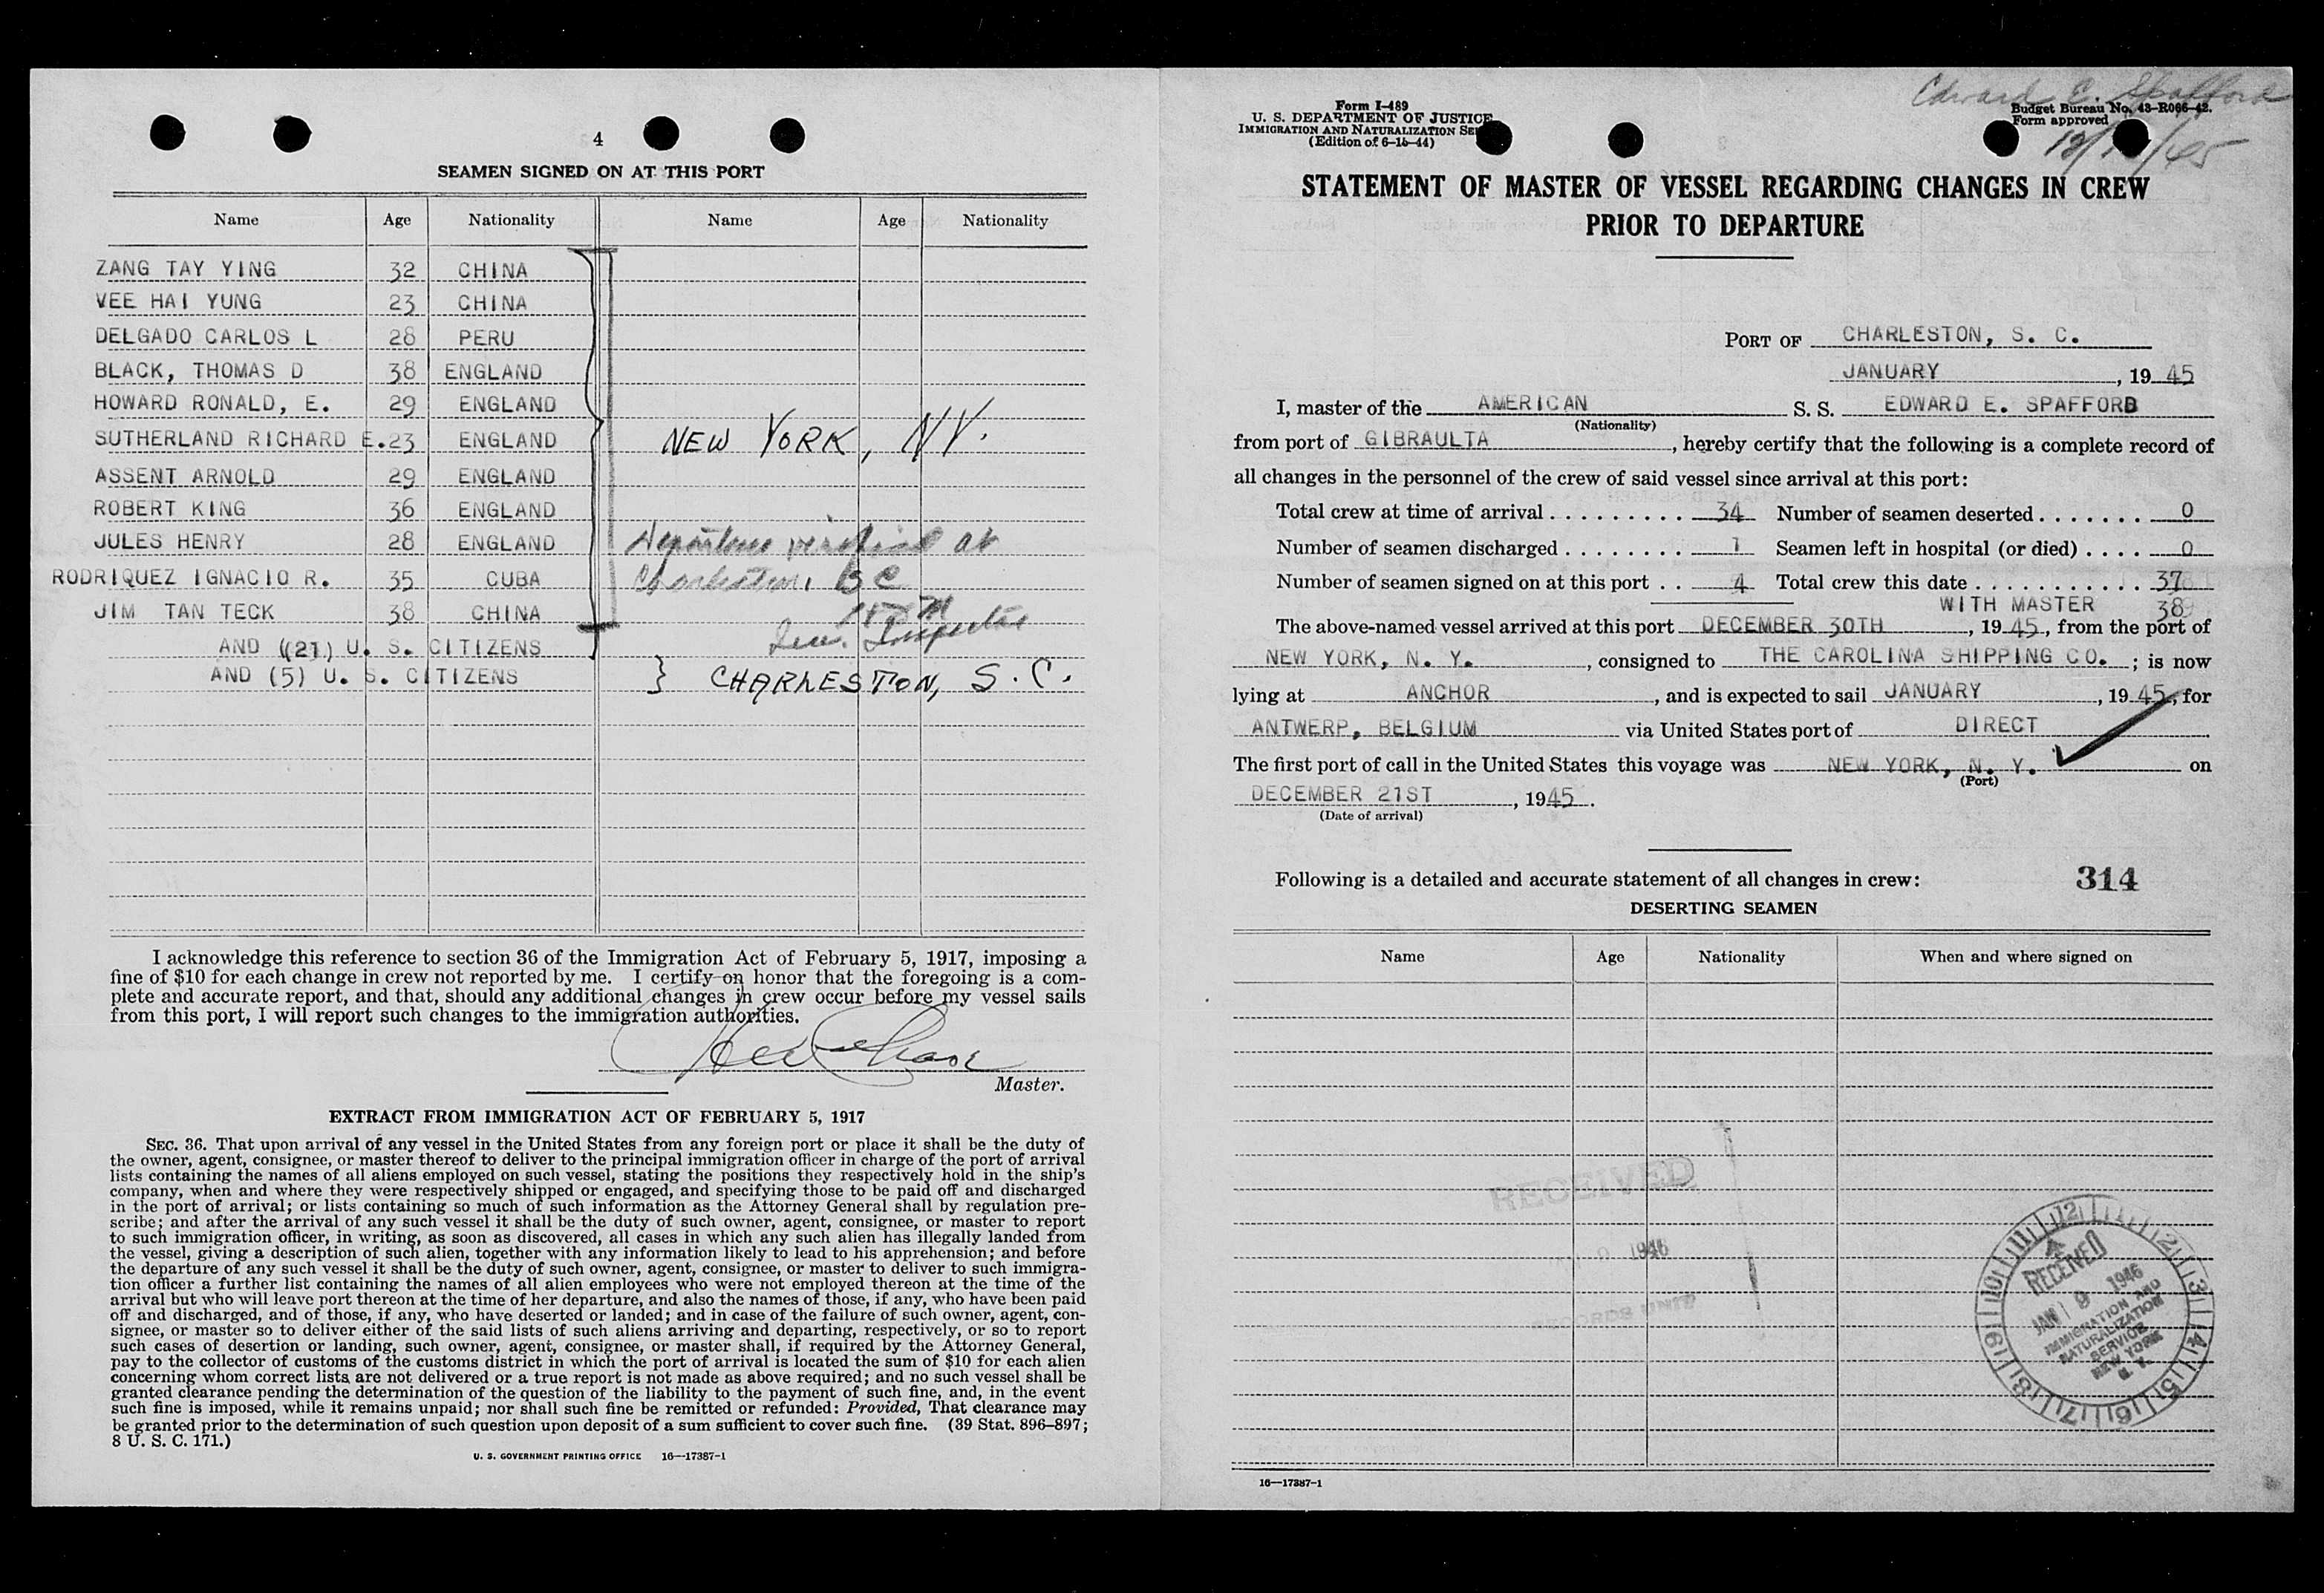 4
SEAMEN SIGNED ON AT THIS PORT
Name Age Nationality Name Age Nationality
ZANG TAY YING 32 CHINA
VEE HAI YUNG 23 CHINA
DELGADO CARLOS L 28 PERU
BLACK, THOMAS D 38 ENGLAND
HOWARD RONALD, E. 29 ENGLAND
SUTHERLAND RICHARD E. 23 ENGLAND NEW YORK, NY.
ASSENT ARNOLD 29 ENGLAND
ROBERT KING 36 ENGLAND
JULES HENRY 28 ENGLAND at
RODRIQUEZ IGNACIO R. 35 CUBA Charleston,
JIM TAN TECK 38 CHINA
Inspector
AND (21) U. S. CITIZENS
AND (5) U. S. CITIZENS } CHARLESTON, S. C.
I acknowledge this reference to section 36 of the Immigration Act of February 5, 1917, imposing a
fine of $10 for each change in crew not reported by me. I certify on honor that the foregoing is a com-
plete and accurate report, and that, should any additional changes in crew occur before my vessel sails
from this port, I will report such changes to the immigration authorities.
Master.
EXTRACT FROM IMMIGRATION ACT OF FEBRUARY 5, 1917
SEC. 36. That upon arrival of any vessel in the United States from any foreign port or place it shall be the duty of
the owner, agent, consignee, or master thereof to deliver to the principal immigration officer in charge of the port of arrival
lists containing the names of all aliens employed on such vessel, stating the positions they respectively hold in the ship's
company, when and where they were respectively shipped or engaged, and specifying those to be paid off and discharged
in the port of arrival; or lists containing so much of such information as the Attorney General shall by regulation pre-
scribe; and after the arrival of any such vessel it shall be the duty of such owner, agent, consignee, or master to report
to such immigration officer, in writing, as soon as discovered, all cases in which any such alien has illegally landed from
the vessel, giving a description of such alien, together with any information likely to lead to his apprehension; and before
the departure of any such vessel it shall be the duty of such owner, agent, consignee, or master to deliver to such immigra-
tion officer a further list containing the names of all alien employees who were not employed thereon at the time of the
arrival but who will leave port thereon at the time of her departure, and also the names of those, if any, who have been paid
off and discharged, and of those, if any, who have deserted or landed; and in case of the failure of such owner, agent, con-
signee, or master so to deliver either of the said lists of such aliens arriving and departing, respectively, or so to report
such cases of desertion or landing, such owner, agent, consignee, or master shall, if required by the Attorney General,
pay to the collector of customs of the customs district in which the port of arrival is located the sum of $10 for each alien
concerning whom correct lists are not delivered or a true report is not made as above required; and no such vessel shall be
granted clearance pending the determination of the question of the liability to the payment of such fine, and, in the event
such fine is imposed, while it remains unpaid; nor shall such fine be remitted or refunded: Provided, That clearance may
be granted prior to the determination of such question upon deposit of a sum sufficient to cover such fine. (39 Stat. 896–897;
8 U. S. C. 171.)
U. S. GOVERNMENT PRINTING OFFICE 16—17387-1
Edward E. Spafford
Form I-489
U. S. DEPARTMENT OF JUSTICE
IMMIGRATION AND NATURALIZATION
(Edition of 6-15-44)
Budget Bureau No. 43-R066-42.
Form approved
STATEMENT OF MASTER OF VESSEL REGARDING CHANGES IN CREW
PRIOR TO DEPARTURE
PORT OF CHARLESTON, S. C.
JANUARY , 19 45
I, master of the AMERICAN S. S. EDWARD E. SPAFFORD
(Nationality)
from port of GIBRAULTA , hereby certify that the following is a complete record of
all changes in the personnel of the crew of said vessel since arrival at this port:
Total crew at time of arrival . . . . . . . . . . 34 Number of seamen deserted . . . . . . . 0
Number of seamen discharged . . . . . . . . 1 Seamen left in hospital (or died) . . . . 0
Number of seamen signed on at this port . . 4 Total crew this date . . . . . . . . . . . . 37
WITH MASTER 38
The above-named vessel arrived at this port DECEMBER 30TH , 19 45, from the port of
NEW YORK, N. Y. , consigned to THE CAROLINA SHIPPING CO. ; is now
lying at ANCHOR , and is expected to sail JANUARY , 19 45, for
ANTWERP, BELGIUM via United States port of DIRECT
The first port of call in the United States this voyage was NEW YORK, N. Y. on
(Port)
DECEMBER 21ST , 1945 .
(Date of arrival)
Following is a detailed and accurate statement of all changes in crew: 314
DESERTING SEAMEN
Name Age Nationality When and where signed on
RECEIVED
1946
RECORDS UNIT
12 1 2 3 4 5 6 7 8 9 10 11
RECEIVED
JAN 9 1946
IMMIGRATION AND
NATURALIZATION
SERVICE
NEW YORK
N. Y.
16—17387-1